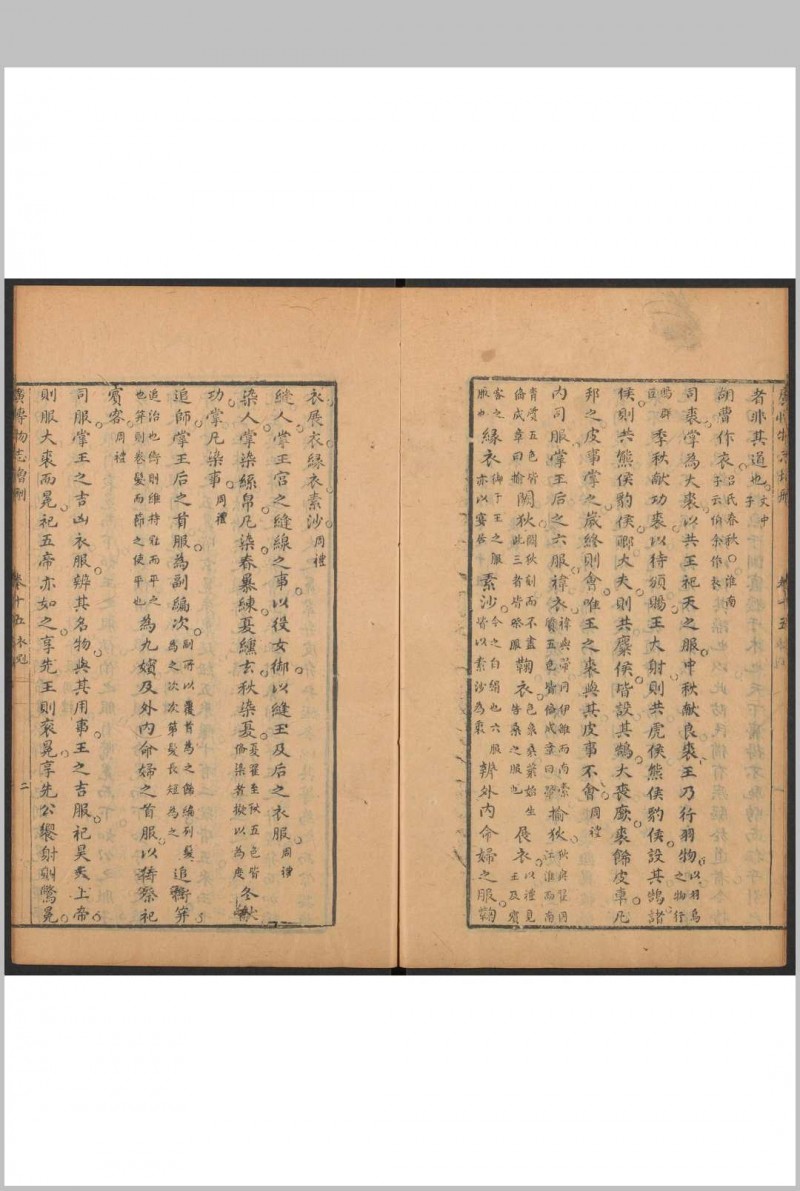 者非其道也文中子
胡曹作衣呂氏春秋○淮南子云伯余作衣
司裘掌為大裘以共王祀天之服中秋獻良裘王乃行羽物以羽鳥之物行
賜群臣季秋獻功裘以待頒賜王大射則共虎侯熊侯豹侯設其鵠諸
侯則共熊侯豹侯卿大夫則共麋侯皆設其鵠大喪廞裘飾皮車凡
邦之皮事掌之歲終則會唯王之裘與其皮事不會周禮
內司服掌王后之六服褘衣褘與翬同伊雒而南素質五色皆俻成章曰翬揄狄狄與翟同江淮而南
青質五色皆俻成章曰揄闕狄闕狄刻而不畫此三者皆祭服鞠衣色象桑葉始生告桑之服也展衣以禮見王及賓
客之服也緣衣御于王之服亦以宴居素沙今之白絹也六服皆以素沙為裏辨外內命婦之服鞠
衣展衣緣衣素沙周禮
縫人掌王宮之縫線之事以役女御以縫王及后之衣服周禮
染人掌染絲帛凡染春暴練夏纁玄秋染夏夏翟至秋五色皆俻染者擬以為度冬獻
功掌凡染事周禮
追師掌王后之首服為副編次副所以覆首為之飾編列髮為之次次第髮長短為之追衡笄
追治也衡則維持冠而平之也笄則卷髮而節之使平也為九嬪及外內命婦之首服以待祭祀
賓客周禮
司服掌王之吉凶衣服辨其名物與其用事王之吉服祀昊天上帝
則服大裘而冕祀五帝亦如之享先王則袞冕享先公饗射則鷩冕
廣博物志增刪 卷十五 衣冠 二